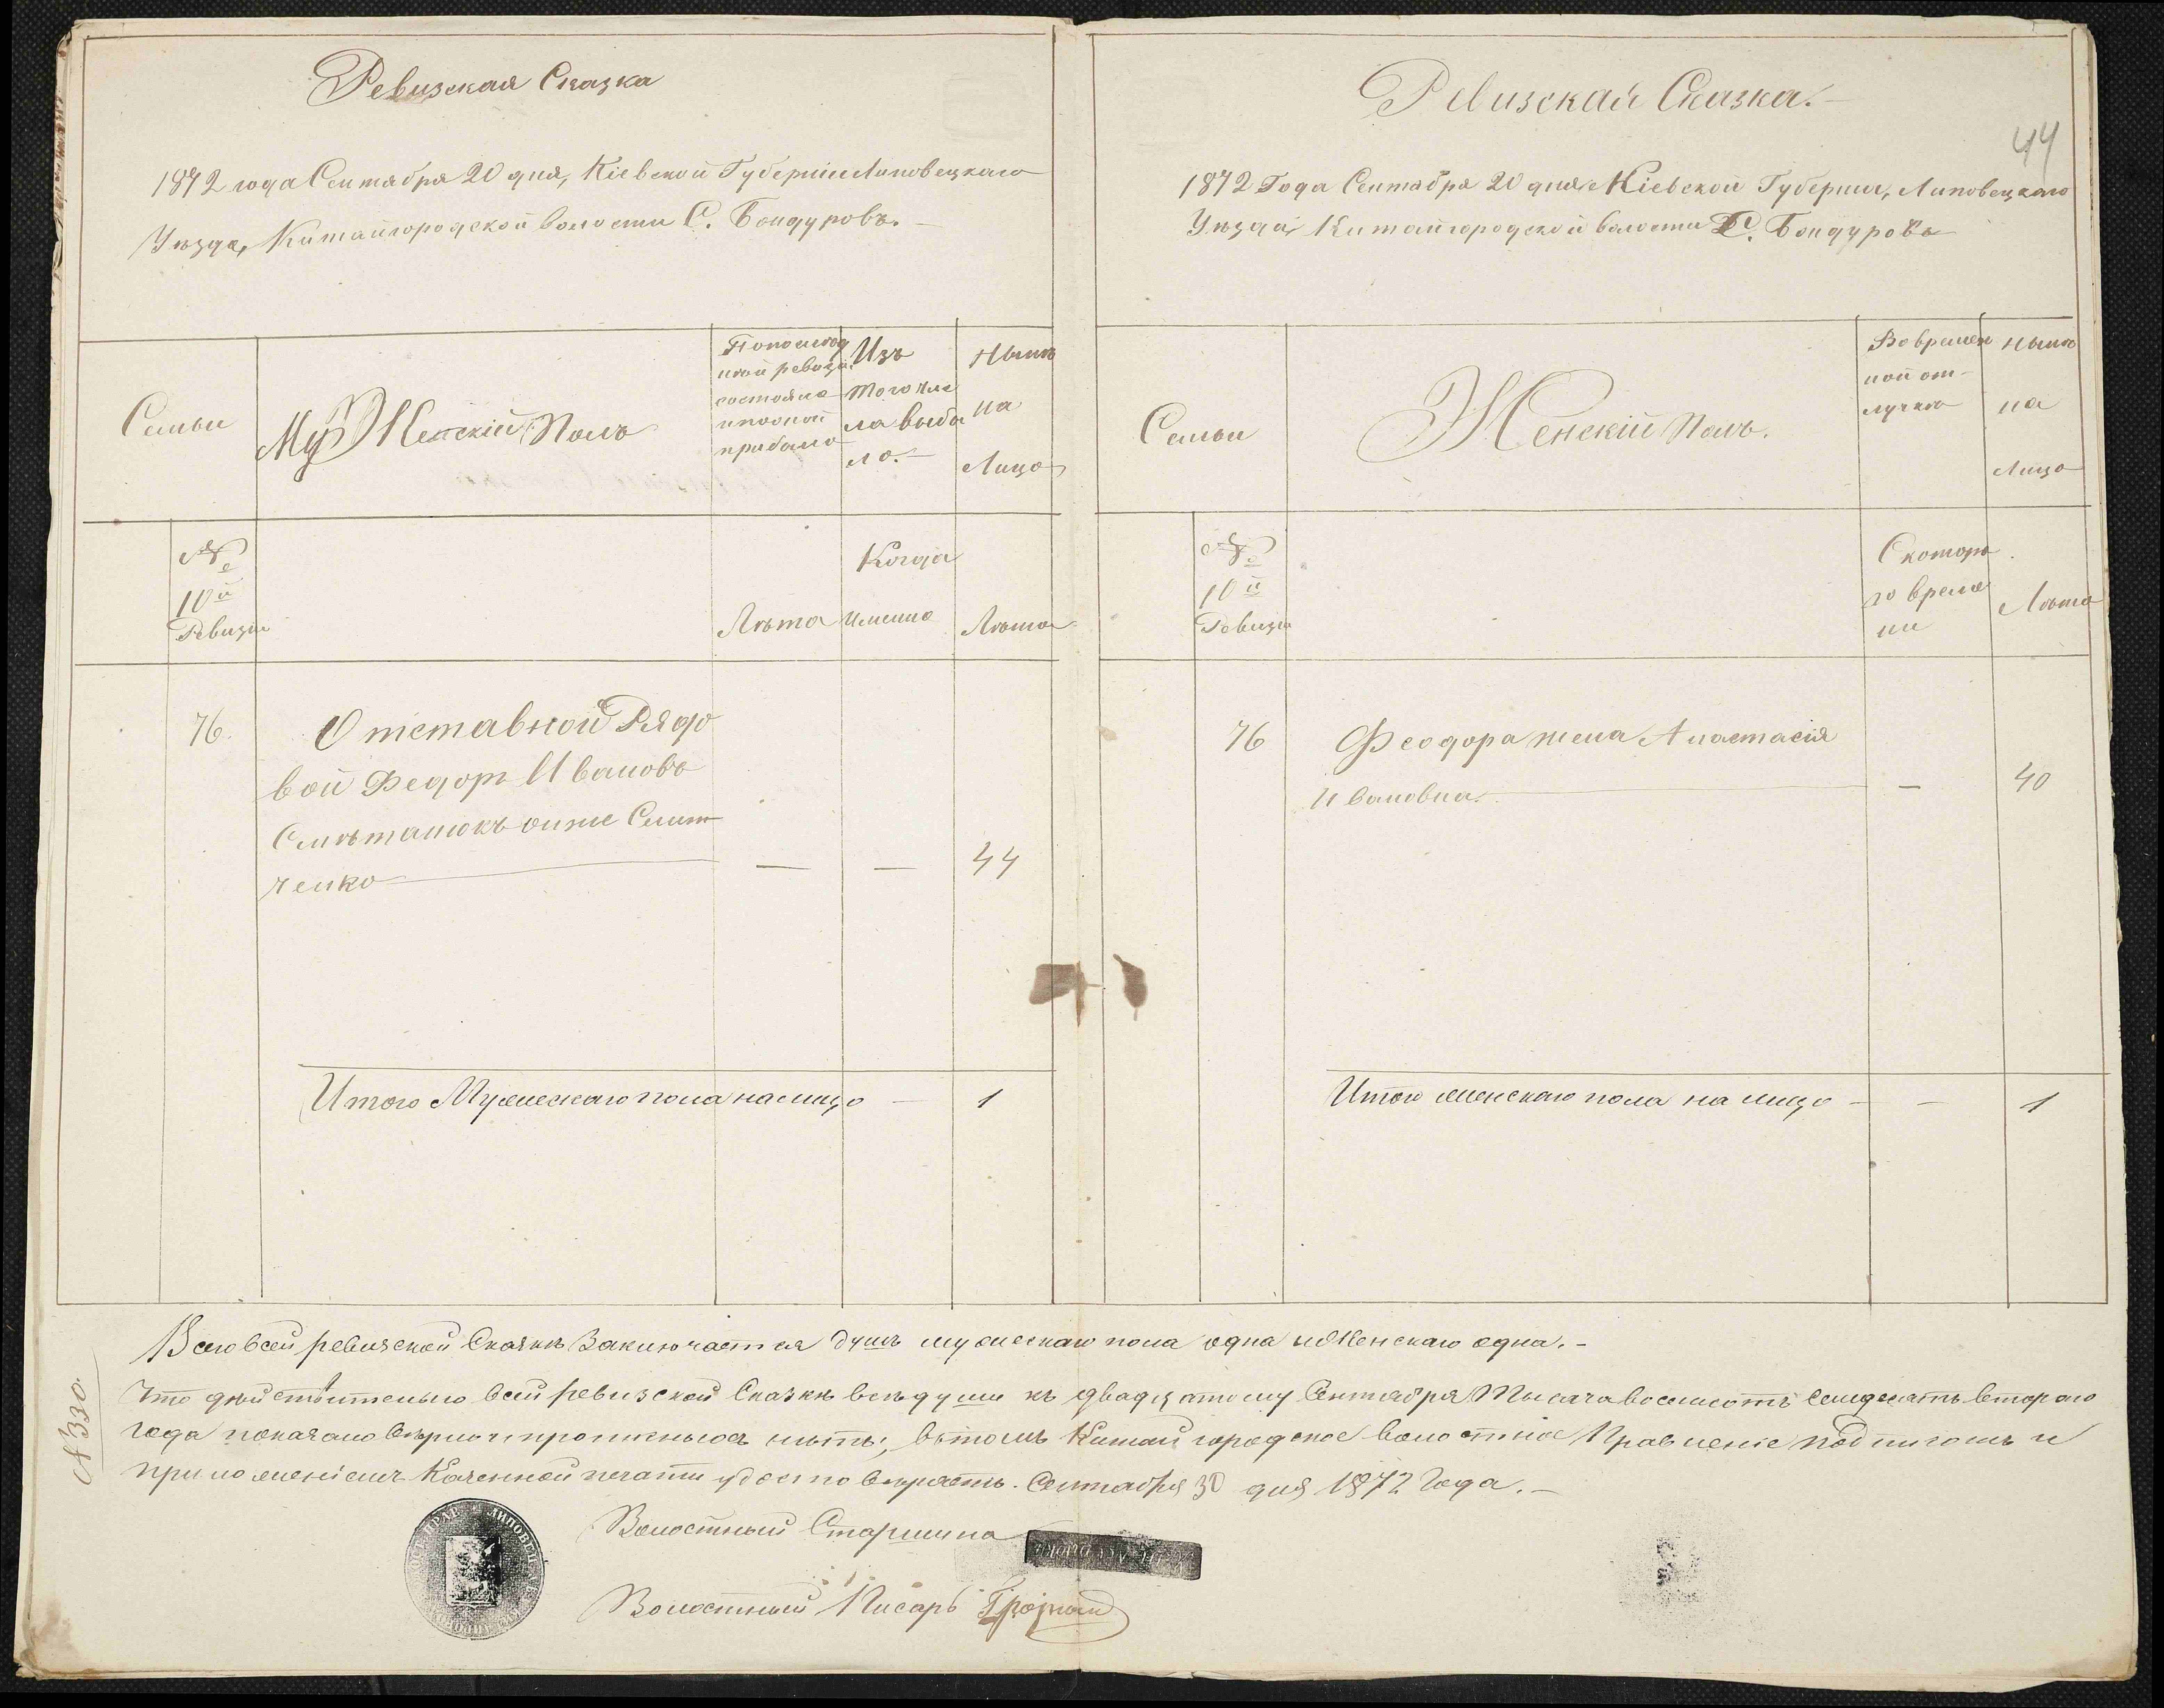 Ревизская Сказка
1872 года Сентября 20 дня, Кіевской Губерніи Липовецкаго
Уѣзда, Китайгородской волости С. Бондуровъ.
Семьи
Мужескій Полъ
По послѣд
ней ревизіи
состояло
и послѣ
прибыло
Изъ
того чис
ла выбы
ло.
Нынѣ
на
Лицо
№
10й
Ревизіи
Лѣта
Когда
именно
Лѣта
76.
Отставной Рядо
вой Федоръ Ивановъ
Смѣтанюкъ онже Смит
ченко
—
—
44
Итого Мужескаго пола налицо — 1
Ревизская Сказка.
44
1872 Года Сентября 20 дня Кіевской Губерніи, Липовецкаго
Уѣзда, Китайгородской волости С. Бондуровъ
Семьи
Женскій Полъ.
Во времен
ной от-
лучкѣ
Нынѣ
на
Лицо
№
10й
Ревизіи
С котора
го време
ни
Лѣта
76
Феодора жена Анастасія
Ивановна.
—
40
Итого женскаго пола на лицо — — 1
Всего всей ревизской Сказкѣ Заключается душъ мужескаго пола одна и Женскаго одна.
Что дѣйствительно всей ревизской Сказкѣ всѣ души къ двадцатому Сентября Тысяча восемсотъ семдесятъ втораго
года показано вѣрно и прописныхъ нѣтъ, вѣтомъ Китайгородское волостное Правленіе подписомъ и
приложеніемъ Казенной печати удостовѣряетъ. Сентября 30 дня 1872 Года.
№ 330.
Волостный Старшина
Волостный Писарь